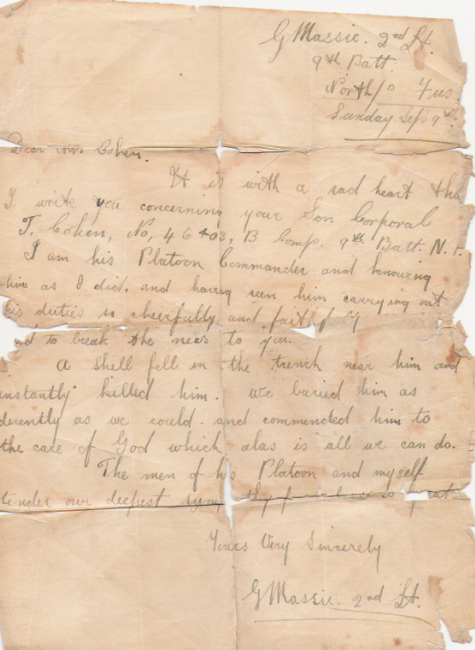 G Massie. 2nd Lt.
9th Batt.
North'd Fus
Sunday Sep 9th
Dear Mr. Cohen.
It is with a sad heart tha
I write you concerning your Son Corporal
T. Cohen, No, 46403, B Comp. 9th Batt. N. F.
I am his Platoon Commander and knowing
him as I did. and having seen him carrying out
his duties so cheerfully and faithfully
ad to break the news to you.
A shell fell in the trench near him and
instantly killed him. We buried him as
decently as we could. and commended him to
the care of God which alas is all we can do.
The men of his Platoon and myself
tender our deepest sympathy is great
Yours Very Sincerely
G Massie. 2nd Lt.